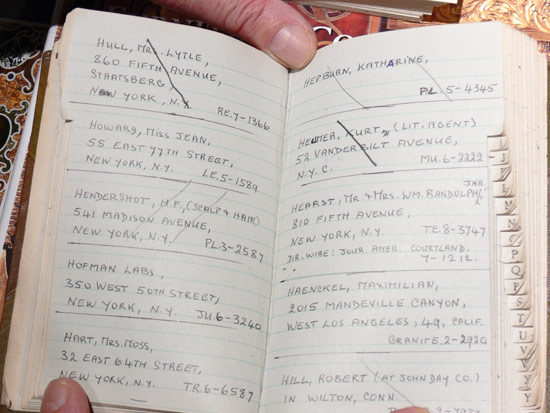 HULL, MR. LYTLE,
860 FIFTH AVENUE,
STAATSBERG,
NEW YORK, N.Y. RE.7-1366
HOWARD, MISS JEAN,
55 EAST 77TH STREET,
NEW YORK, N.Y. LE.5-1589
HENDERSHOT, H.F., (SCALP & HAIR)
541 MADISON AVENUE,
NEW YORK, N.Y. PL.3-2587
HOFMAN LABS.,
350 WEST 50TH STREET,
NEW YORK, N.Y. JU.6-3240
HART, MRS. MOSS,
32 EAST 64TH STREET,
NEW YORK, N.Y. TR.6-6587
HEPBURN, KATHARINE,
PL.5-4345
KURT (LIT. AGENT)
52 VANDERBILT AVENUE,
N.Y.C. MU.6-
JNR.
HEARST, MR & MRS. WM. RANDOLPH
810 FIFTH AVENUE,
NEW YORK, N.Y. TE.8-3747
DIR. WIRE: JOUR. AMER. COURTLAND.
7-1212.
HAENCKEL, MAXIMILIAN,
2015 MANDEVILLE CANYON,
WEST LOS ANGELES, 49, CALIF.
GRANITE.2-2920
HILL, ROBERT (AT JOHN DAY CO.)
IN WILTON, CONN.
P
Q
R
S
T
U
V